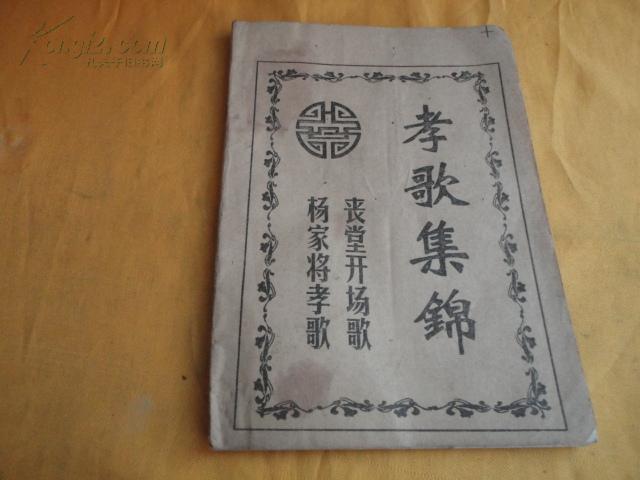 孝歌集錦
丧堂开场歌
杨家将孝歌
Kongfz.com
孔夫子旧书网